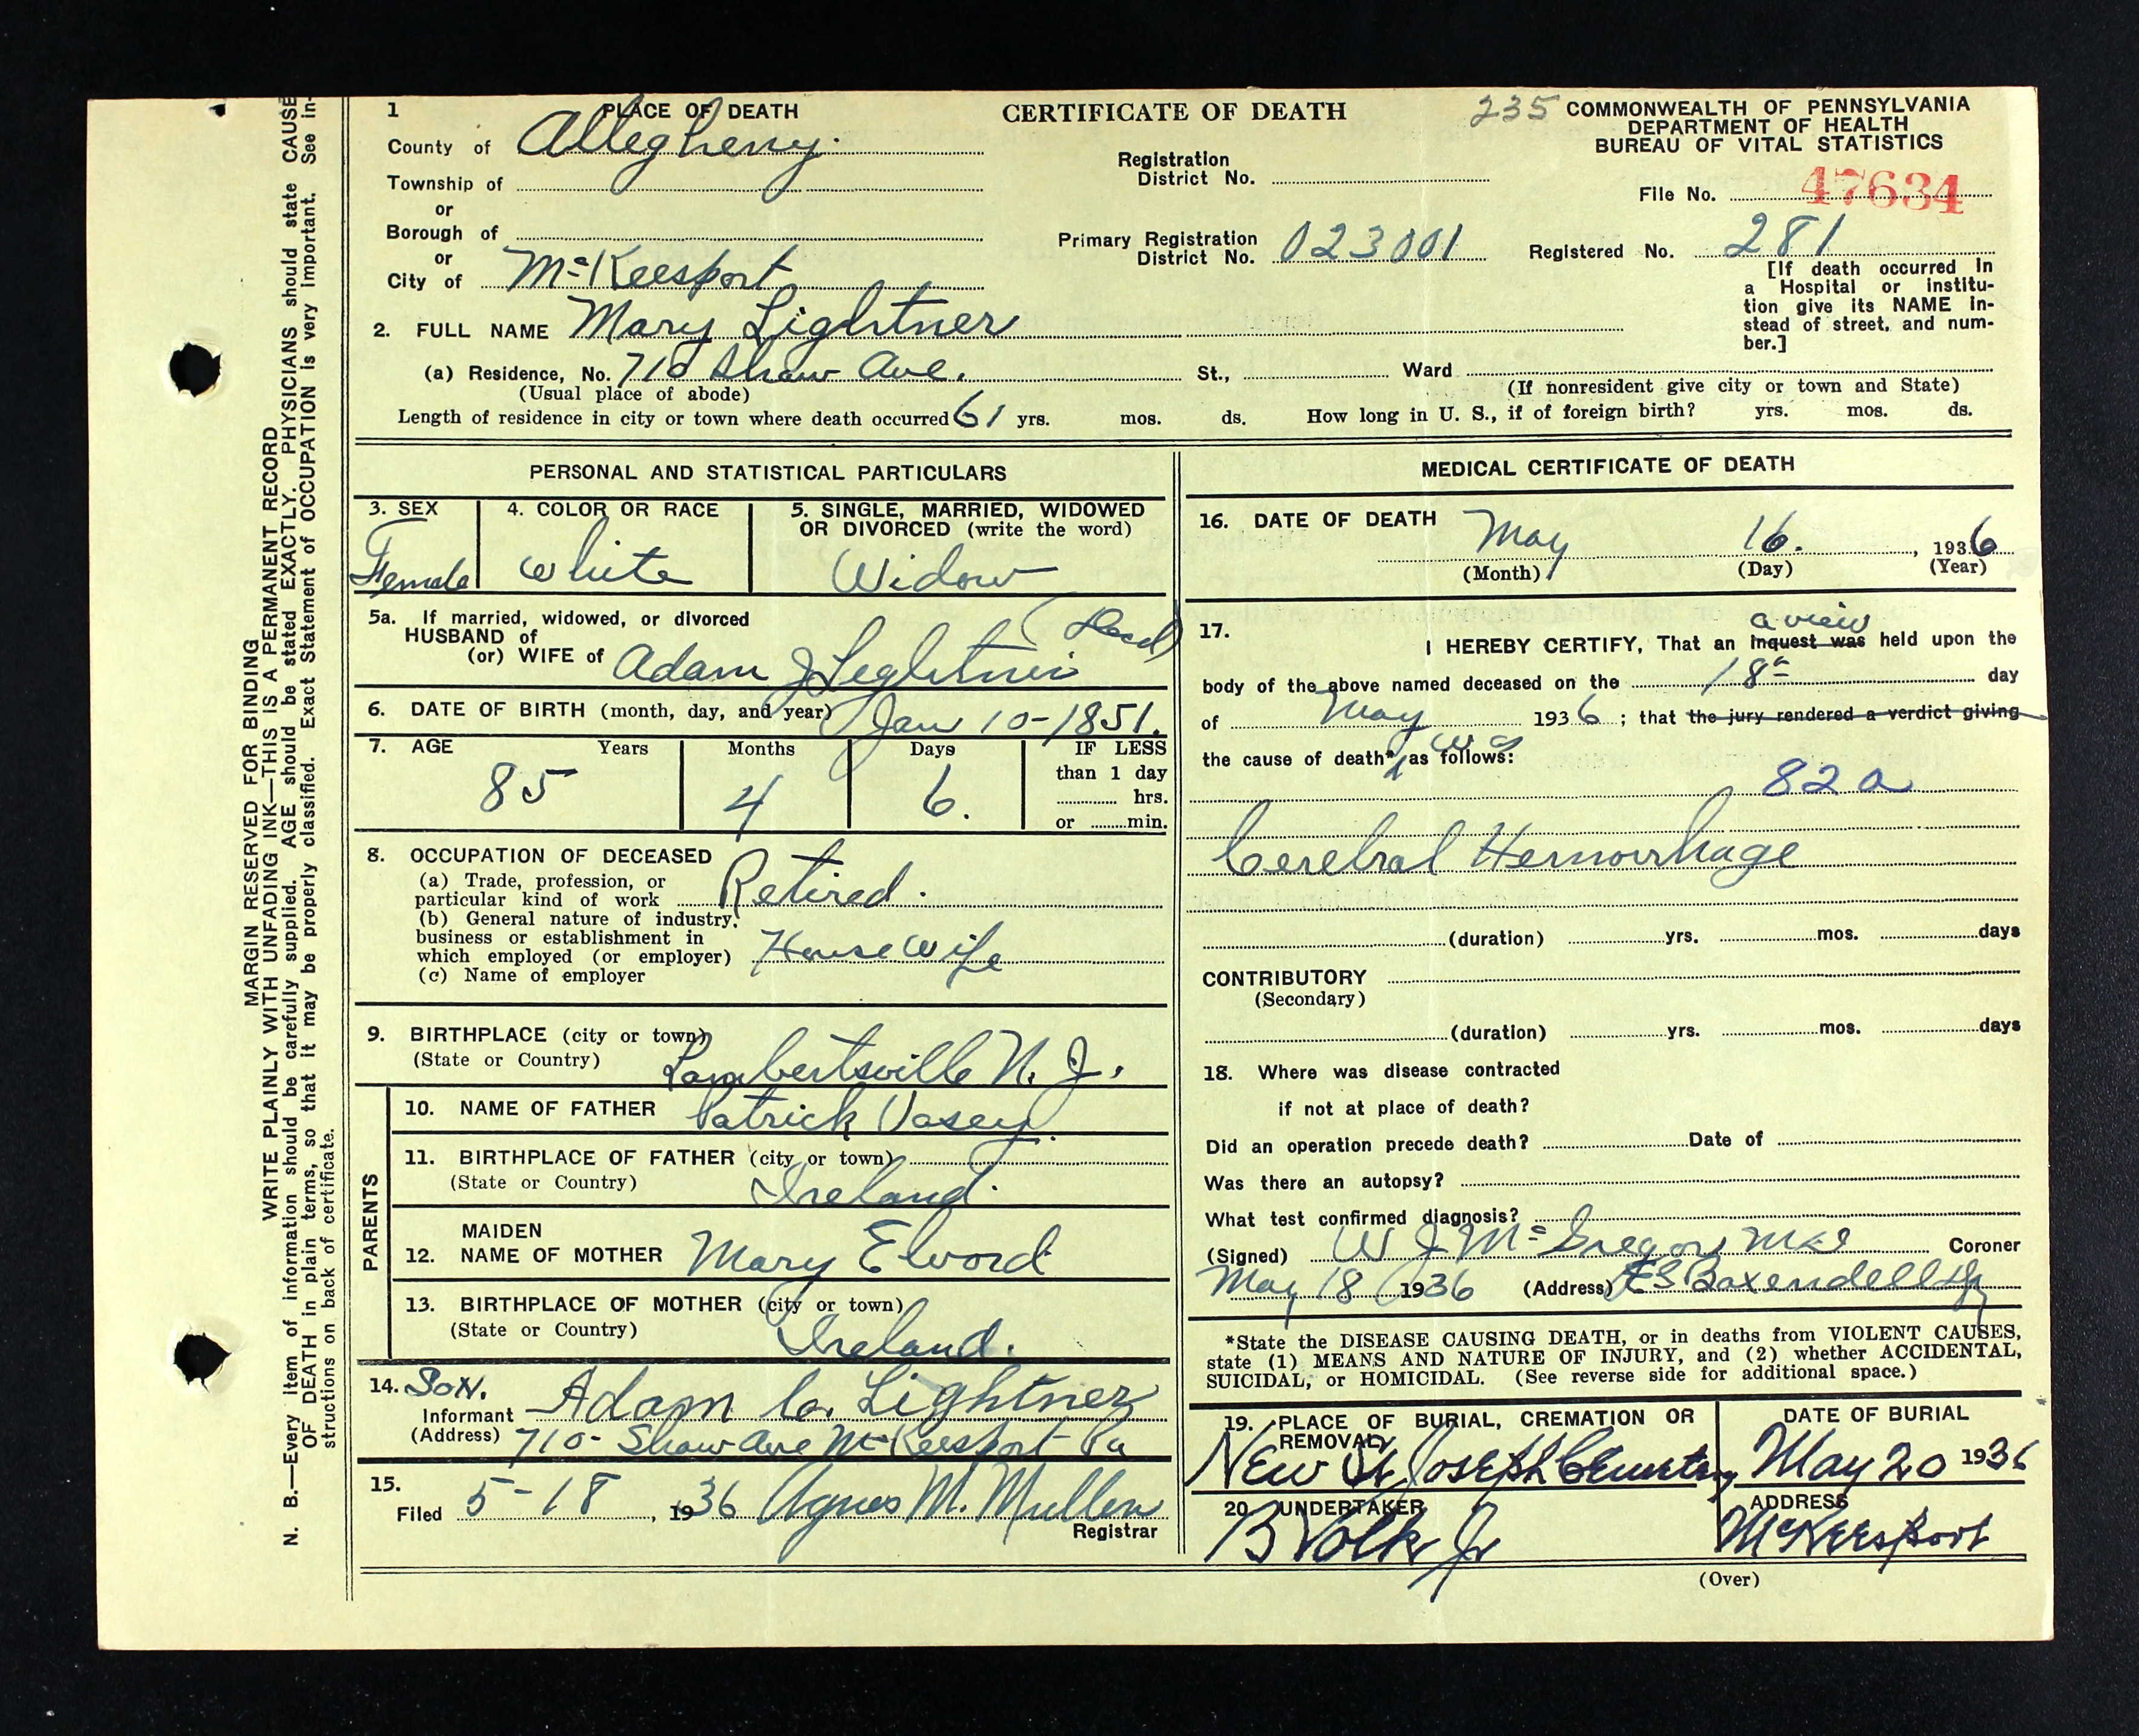 1 PLACE OF DEATH
CERTIFICATE OF DEATH
235 COMMONWEALTH OF PENNSYLVANIA
DEPARTMENT OF HEALTH
BUREAU OF VITAL STATISTICS
County of Allegheny.
Township of
or
Borough of
or
City of McKeesport
Registration
District No.
Primary Registration
District No. 023001
File No. 47634
Registered No. 281
[If death occurred in
a Hospital or institu-
tion give its NAME in-
stead of street, and num-
ber.]
2. FULL NAME Mary Lightner
(a) Residence, No. 710 Shaw Ave. St., Ward
(Usual place of abode)
(If nonresident give city or town and State)
Length of residence in city or town where death occurred 61 yrs. mos. ds. How long in U. S., if of foreign birth? yrs. mos. ds.
PERSONAL AND STATISTICAL PARTICULARS
3. SEX
Female
4. COLOR OR RACE
White
5. SINGLE, MARRIED, WIDOWED
OR DIVORCED (write the word)
Widow
5a. If married, widowed, or divorced
HUSBAND of
(or) WIFE of Adam J Lightner
6. DATE OF BIRTH (month, day, and year) Jan 10-1851.
7. AGE Years Months Days IF LESS
than 1 day
hrs.
or min.
85 4 6.
8. OCCUPATION OF DECEASED
(a) Trade, profession, or
particular kind of work Retired.
(b) General nature of industry,
business or establishment in
which employed (or employer) House Wife
(c) Name of employer
9. BIRTHPLACE (city or town)
(State or Country) Lambertsville N. J.
PARENTS
10. NAME OF FATHER Patrick Vasey.
11. BIRTHPLACE OF FATHER (city or town)
(State or Country) Ireland.
MAIDEN
12. NAME OF MOTHER Mary Elvord
13. BIRTHPLACE OF MOTHER (city or town)
(State or Country) Ireland.
14. Son.
Informant Adam C. Lightner
(Address) 710- Shaw Ave McKeesport Pa
15.
Filed 5-18, 1936 Agnes M. Mullen
Registrar
MEDICAL CERTIFICATE OF DEATH
16. DATE OF DEATH May 16. , 1936
(Month) (Day) (Year)
17. a view
I HEREBY CERTIFY, That an inquest was held upon the
body of the above named deceased on the 18 day
of May 1936; that the jury rendered a verdict giving
was
the cause of death* as follows:
82 a
Cerebral Hemorrhage
(duration) yrs. mos. days
CONTRIBUTORY
(Secondary)
(duration) yrs. mos. days
18. Where was disease contracted
if not at place of death?
Did an operation precede death? Date of
Was there an autopsy?
What test confirmed diagnosis?
(Signed) W J McGregor Coroner
May 18 1936 (Address) ES Baxendell
*State the DISEASE CAUSING DEATH, or in deaths from VIOLENT CAUSES,
state (1) MEANS AND NATURE OF INJURY, and (2) whether ACCIDENTAL,
SUICIDAL, or HOMICIDAL. (See reverse side for additional space.)
19. PLACE OF BURIAL, CREMATION OR
REMOVAL
New St Joseph Cemetery
DATE OF BURIAL
May 20 1936
20. UNDERTAKER
B Volk Jr
ADDRESS
McKeesport
(Over)
MARGIN RESERVED FOR BINDING
WRITE PLAINLY WITH UNFADING INK—THIS IS A PERMANENT RECORD
N. B.—Every item of information should be carefully supplied. AGE should be stated EXACTLY. PHYSICIANS should state CAUSE
OF DEATH in plain terms, so that it may be properly classified. Exact Statement of OCCUPATION is very important. See in-
structions on back of certificate.